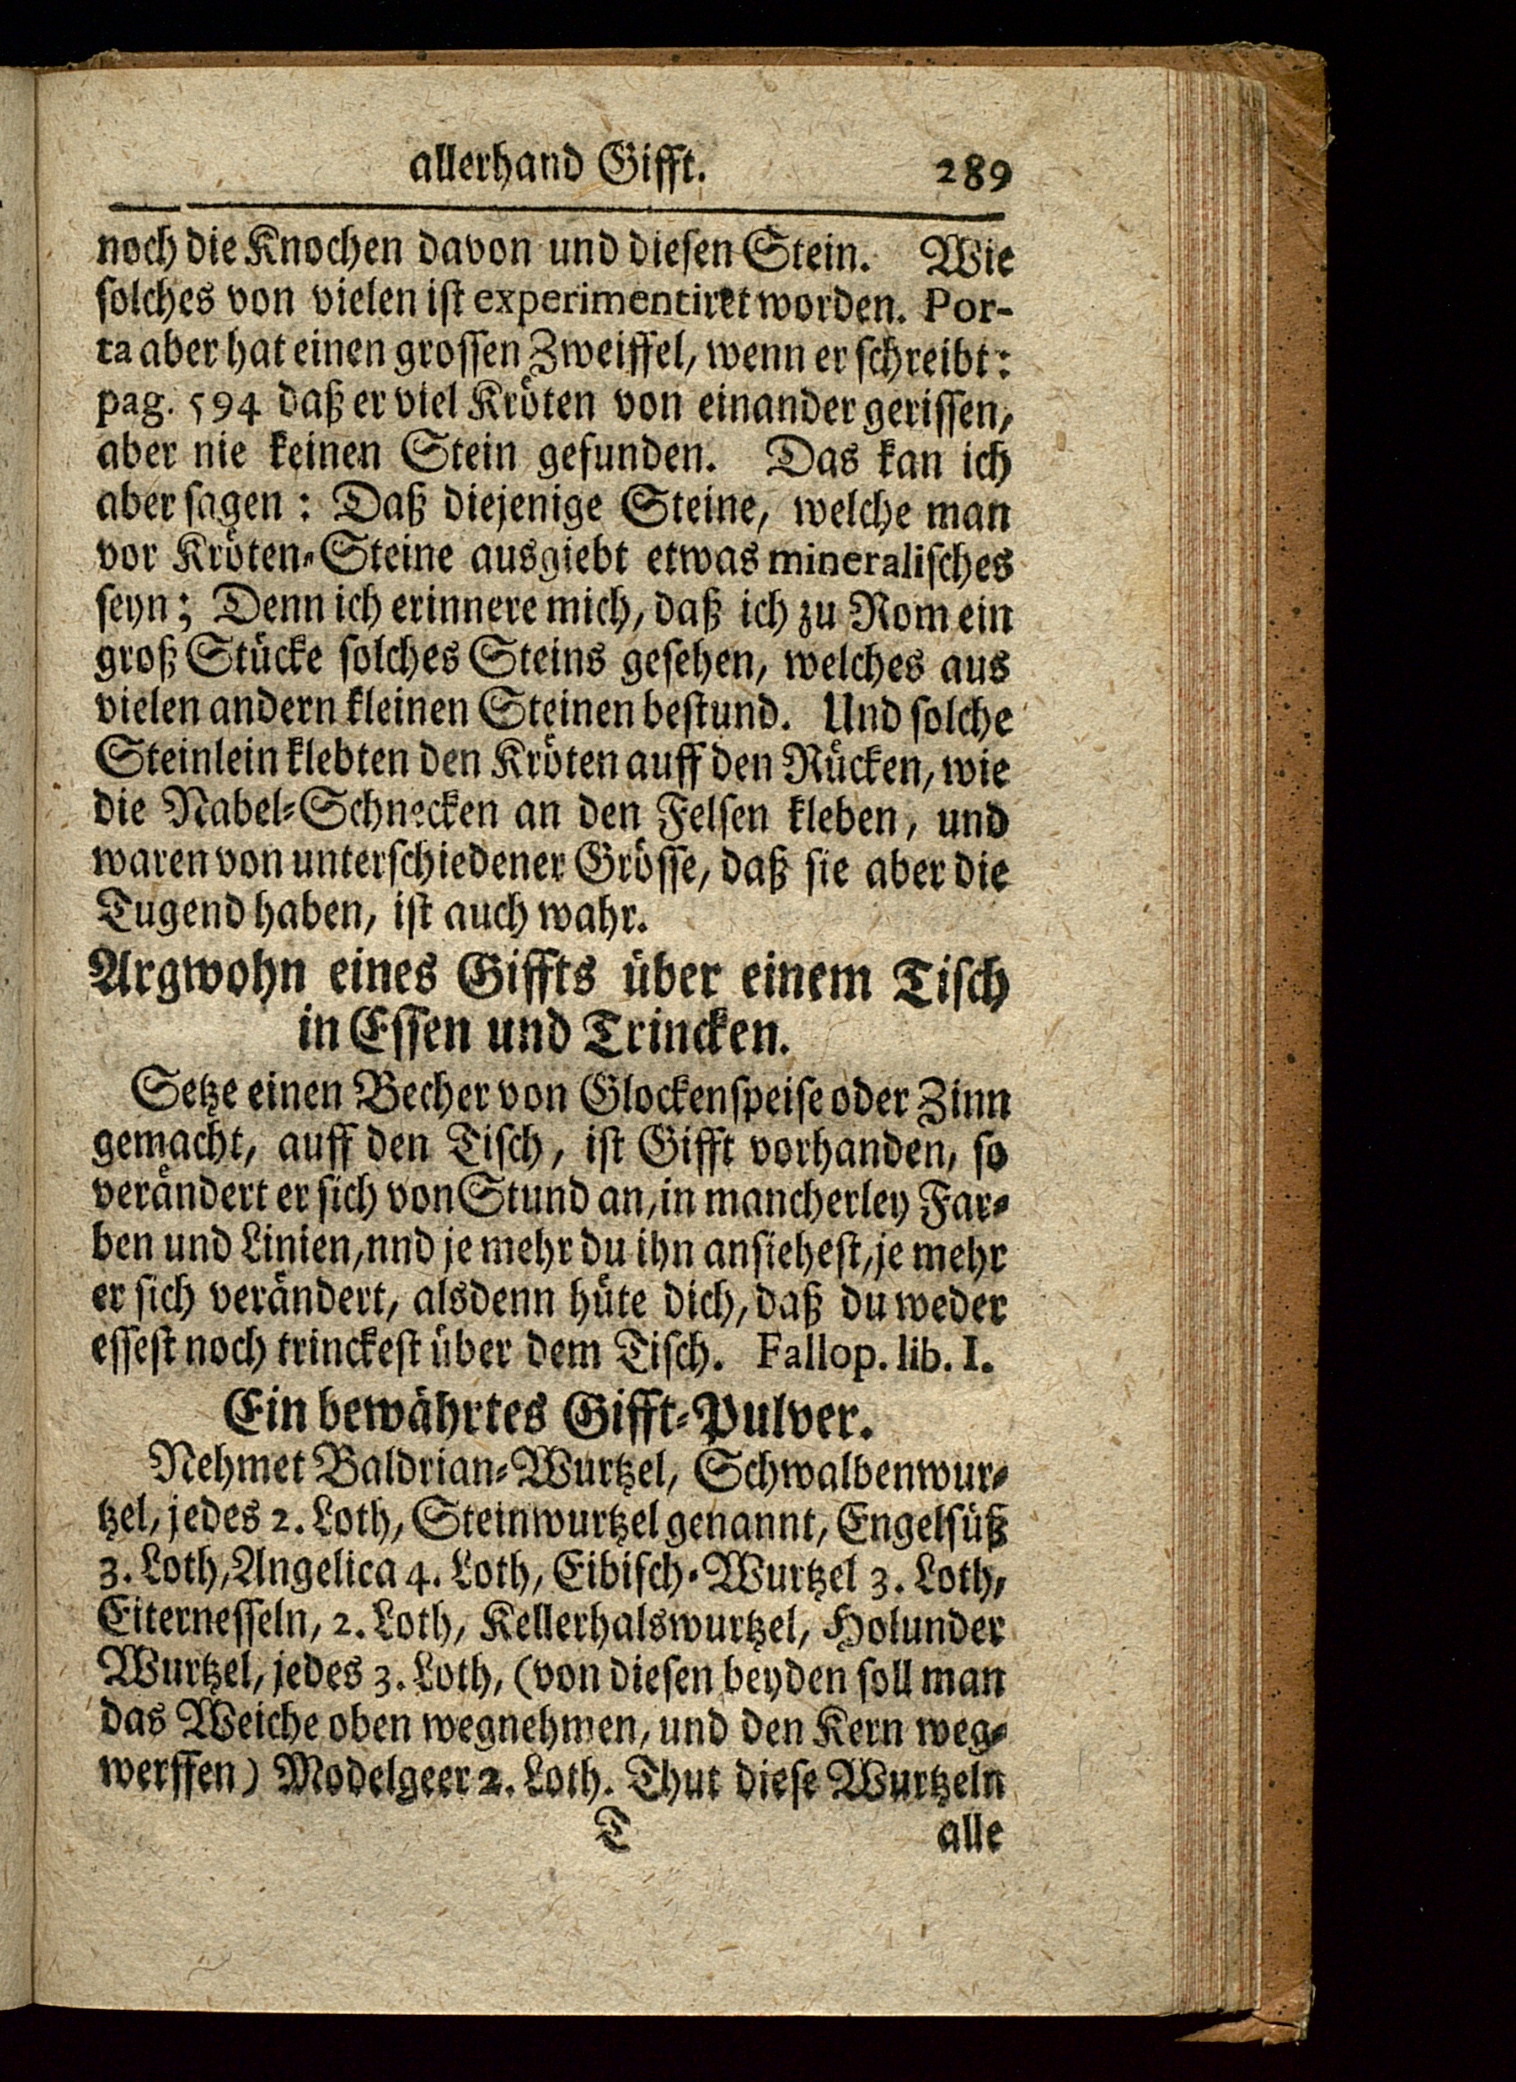 allerhand Gifft. 289
noch die Knochen davon und diesen Stein. Wie
solches von vielen ist experimentiret worden. Por-
ta aber hat einen grossen Zweiffel, wenn er schreibt:
pag. 594 daß er viel Kröten von einander gerissen,
aber nie keinen Stein gefunden. Das kan ich
aber sagen: Daß diejenige Steine, welche man
vor Kröten-Steine ausgiebt etwas mineralisches
seyn; Denn ich erinnere mich, daß ich zu Rom ein
groß Stücke solches Steins gesehen, welches aus
vielen andern kleinen Steinen bestund. Und solche
Steinlein klebten den Kröten auff den Rücken, wie
die Nabel-Schnecken an den Felsen kleben, und
waren von unterschiedener Grösse, daß sie aber die
Tugend haben, ist auch wahr.
Argwohn eines Giffts über einem Tisch
in Essen und Trincken.
Setze einen Becher von Glockenspeise oder Zinn
gemacht, auff den Tisch, ist Gifft vorhanden, so
verändert er sich von Stund an, in mancherley Far-
ben und Linien, nnd je mehr du ihn ansiehest, je mehr
er sich verändert, alsdenn hüte dich, daß du weder
essest noch trinckest über dem Tisch. Fallop. lib. I.
Ein bewährtes Gifft-Pulver.
Nehmet Baldrian-Wurtzel, Schwalbenwur-
tzel, jedes 2. Loth, Steinwurtzel genannt, Engelsüß
3. Loth, Angelica 4. Loth, Eibisch-Wurtzel 3. Loth,
Eiternesseln, 2. Loth, Kellerhalswurtzel, Holunder
Wurtzel, jedes 3. Loth, (von diesen beyden soll man
das Weiche oben wegnehmen, und den Kern weg-
werffen) Modelgeer 2. Loth. Thut diese Wurtzeln
T alle